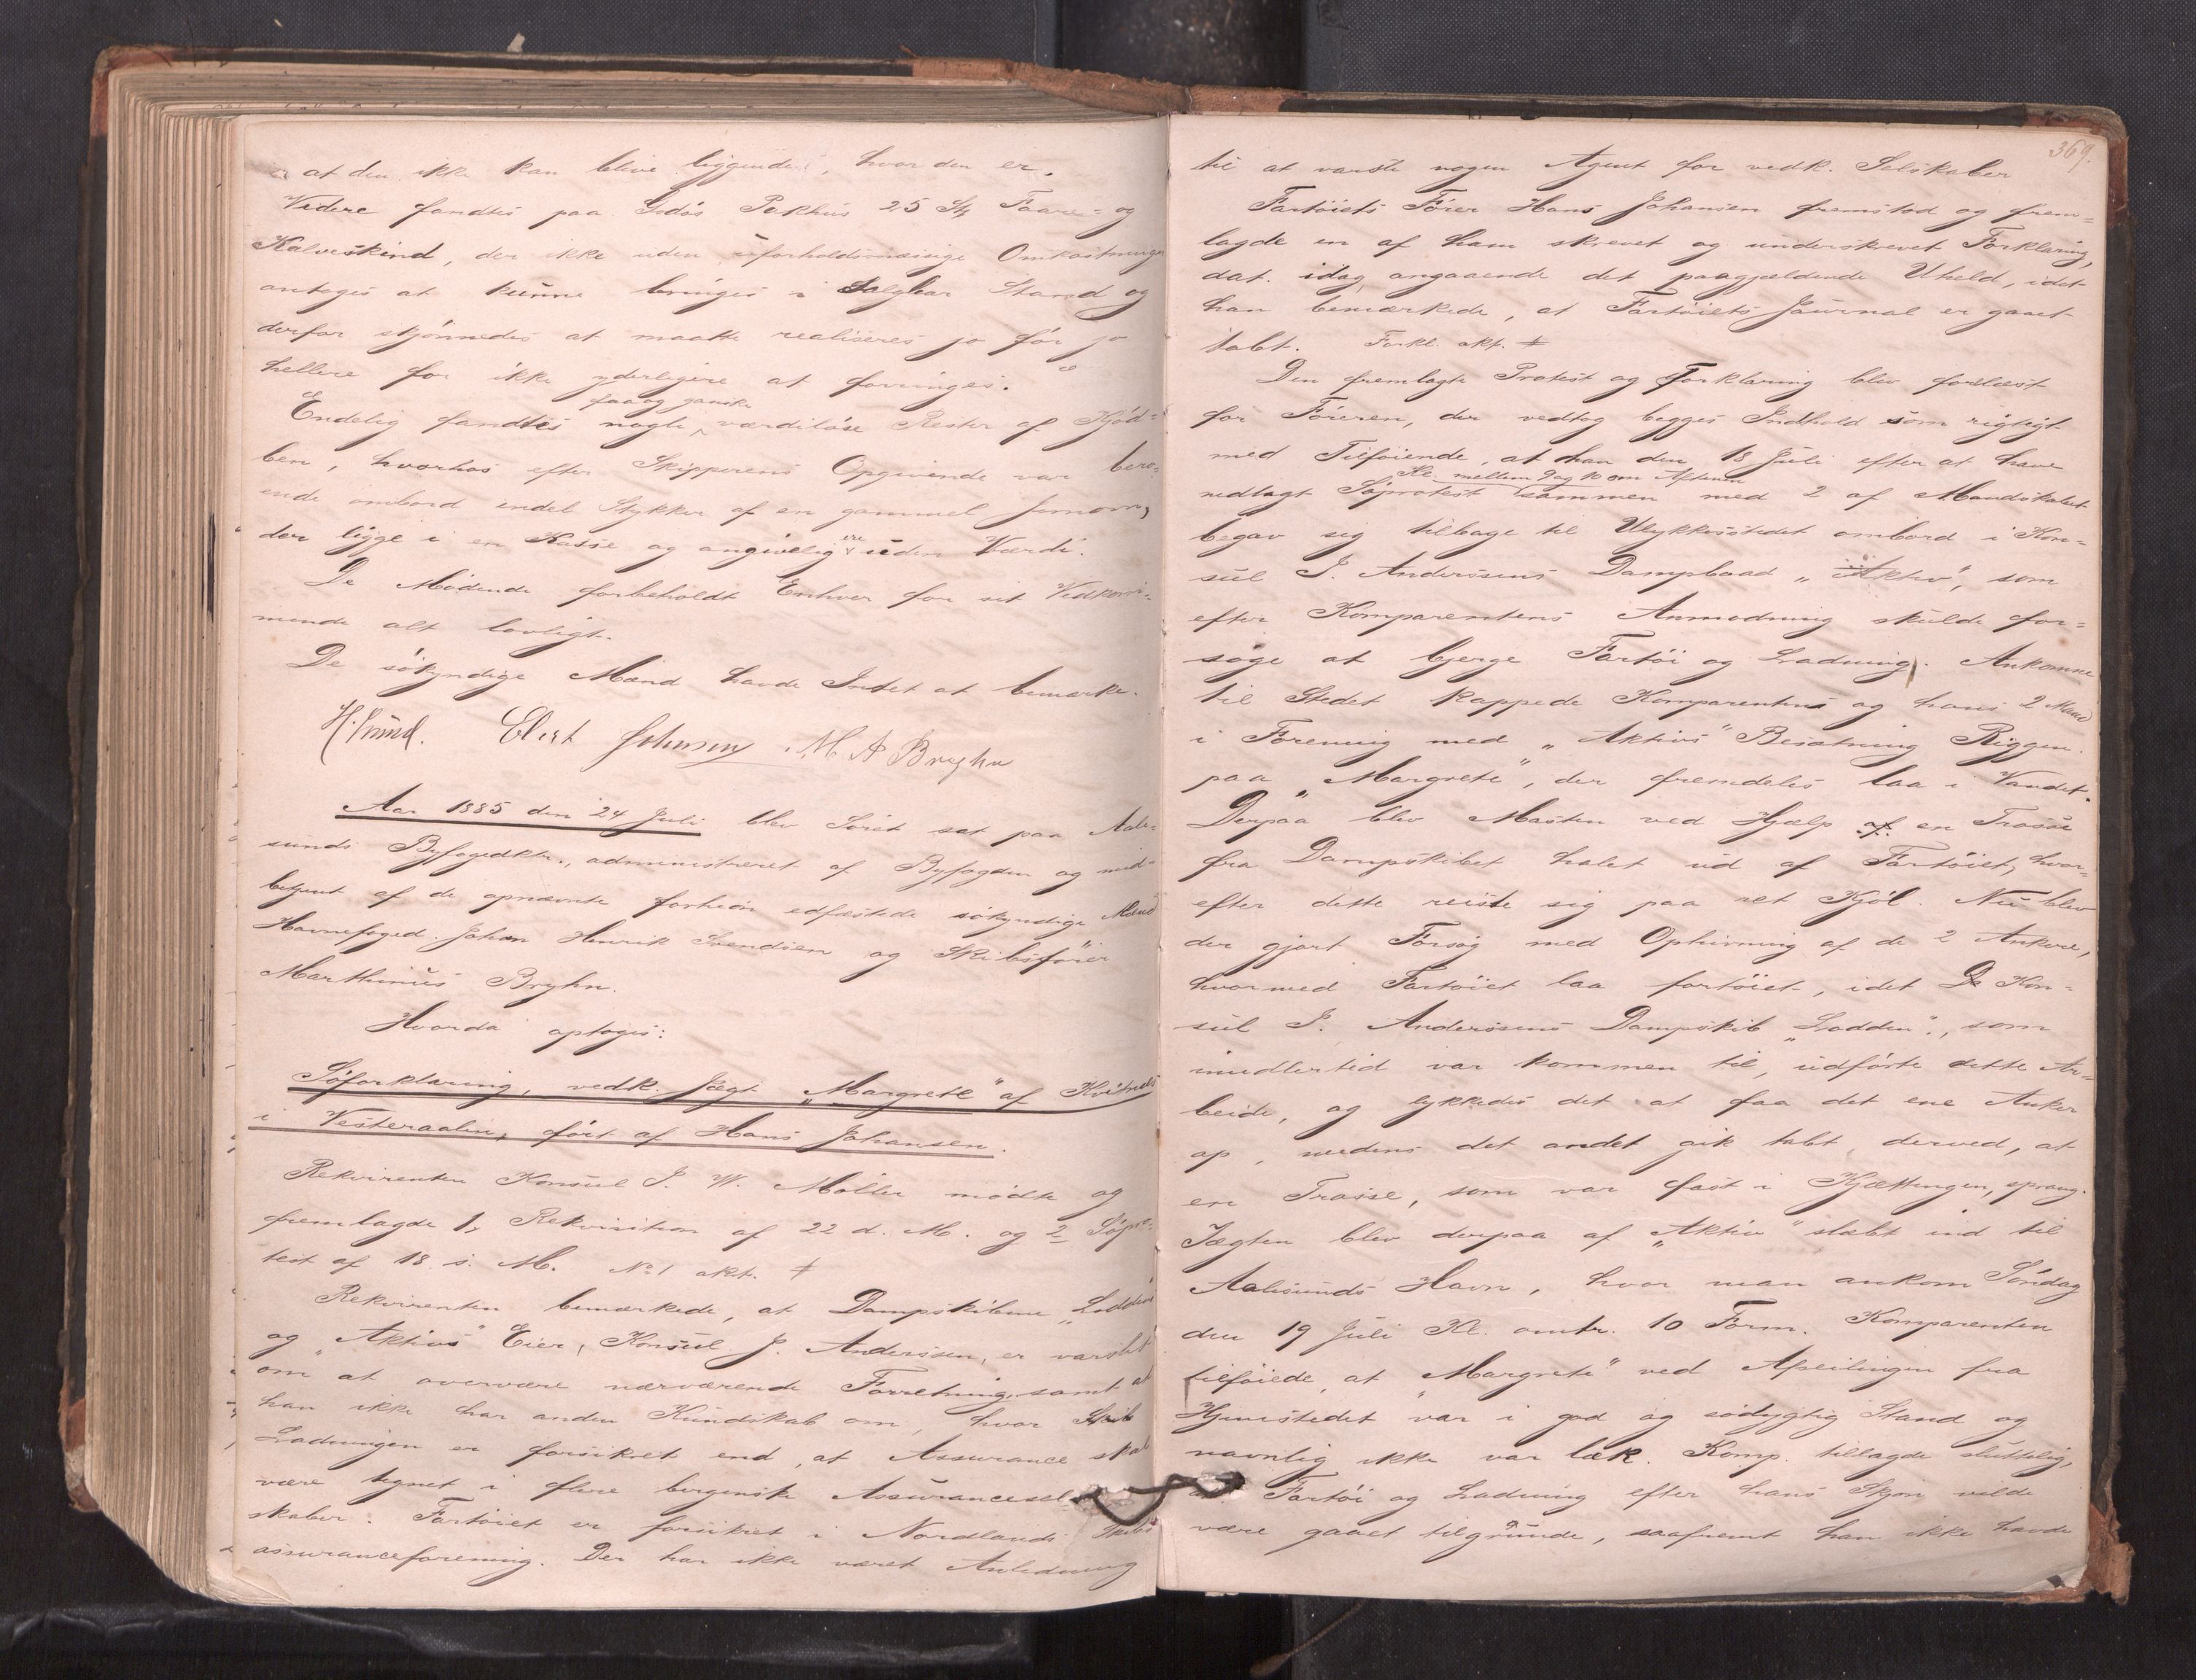 at den ikke kan blive liggende, hvor den er.
Videre fandtes paa Godøs Pakhus 25 Stk Faare- og
Kalveskind, der ikke uden uforholdsmæssige Omkostninger
antages at kunne bringes i salgbar Stand og
derfor skjønnedes at maatte realiseres jo før jo
hellere for ikke yderligere at forringes.
faa og ganske
Endelig fandtes nogle værdiløse Rester af Kjød-
ben, hvorhos efter Skipperens Opgivende var bero-
ende ombord endel Stykker af en gammel Jernovn,
der ligge i en Kasse og angivelig ere uden Værdi.
De Mødende forbeholdt Enhver for sit Vedkom-
mende alt lovligt.
De søkyndige Mænd havde Intet at bemærke.
Elert Johnsen M A Bryhn
Aar 1885 den 24 Juli blev Søret sat paa Aale-
sunds Byfogedktr., administreret af Byfogden og med-
betjent af de opnævnte forhen edfæstede søkyndige Mænd
Havnefoged Johan Henrik Svendsen og Skibsfører
Marthinus Bryhn.
Hvorda optoges:
Søforklaring, vedk. Jagt „Margrete" af Kvitnes
i Vesteraalen, ført af Hans Johansen.
Rekvirenten Konsul J. W. Møller mødte og
fremlagde 1, Rekvisition af 22 d. M. og 2 Søpro-
test af 18 s. M. No 1 akt. ‡
Rekvirenten bemærkede, at Dampskibene „Lodden"
og „Aktivs" Eier, Konsul J. Anderssen, er varslet
om at overvære nærværende Forretning, samt at
han ikke har anden Kundskab om, hvor Skib
Ladningen er forsikret end, at Assurance skal
være tegnet i flere bergenske Assurancesel-
skaber. Fartøiet er forsikret i Nordlands Skibs
assuranceforening. Der har ikke været Anledning
369.
til at varsle nogen Agent for vedk. Selskaber
Fartøiets Fører Hans Johansen fremstod og frem-
lagde en af ham skrevet og underskrevet Forklaring,
dat. idag, angaaende det paagjældende Uheld, idet
han bemærkede, at Fartøiets Journal er gaaet
tabt. Forkl. akt. ‡
Den fremlagte Protest og Forklaring blev forelæst
for Føreren, der vedtog begges Indhold som rigtigt
med Tilføiende, at han den 18 Juli efter at have
Kl. mellem 9 og 10 om Aftenen
nedlagt Søprotest sammen med 2 af Mandskabet
begav sig tilbage til Ulykkesstedet ombord i Kon-
sul J. Anderssens Dampbaad „Aktiv", som
efter Komparentens Anmodning skulde for-
søge at bjerge Fartøi og Ladning. Ankomne
til Stedet kappede Komparenten og hans 2 Mand
i Forening med „Aktivs" Besætning Riggen
paa „Margrete", der fremdeles laa i Vandet.
Derpaa blev Masten ved Hjælp af en Trosse
fra Dampskibet halet ud af Fartøiet, hvor-
efter dette reiste sig paa ret Kjøl. Nu blev
der gjort Forsøg med Ophivning af de 2 Ankere,
hvormed Fartøiet laa fortøiet, idet Kon-
sul J. Anderssens Dampskib „Lodden", som
imidlertid var kommen til, udførte dette Ar-
beide, og lykkedes det at faa det ene Anker
op, medens det andet gik tabt derved, at
en Trosse, som var fast i Kjættingen, sprang.
Jægten blev derpaa af „Aktiv" slæbt ind til
Aalesunds Havn, hvor man ankom Søndag
den 19 Juli Kl. omtr. 10 Form. Komparenten
tilføiede, at „Margrete" ved Afseilingen fra
Hjemstedet var i god og sødygtig Stand og
navnlig ikke var læk. Komp. tillagde sluttelig,
at Fartøi og Ladning efter hans Skjøn vilde
være gaaet tilgrunde, saafremt han ikke havde